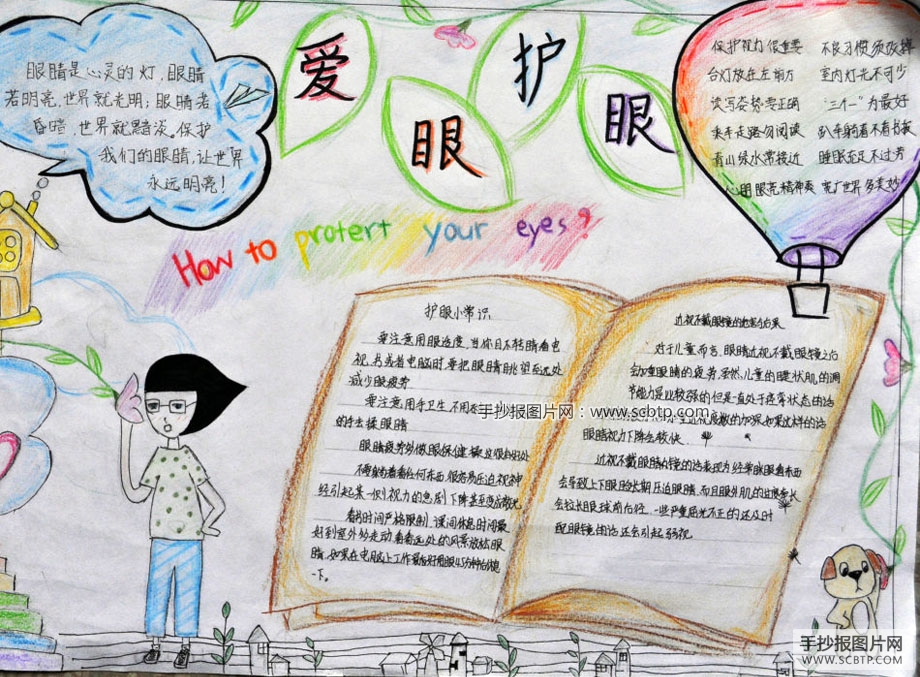 爱
护
眼
眼
眼睛是心灵的灯,眼睛
若明亮,世界就光明;眼睛若
昏暗,世界就黯淡。保护
我们的眼睛,让世界
永远明亮!
How to protert your eyes?
保护视力很重要 不良习惯须改掉
台灯放在左前方 室内灯光不可少
读写姿势要正确 "三个一"为最好
乘车走路勿阅读 趴车躺着不看书
青山绿水常接近 睡眠充足不过劳
心明眼亮精神爽 宽广世界多美妙
护眼小常识
要注意用眼适度,当你目不转睛看电
视,或盯着电脑时,要把眼睛眺望至远处
减少眼疲劳
要注意用手卫生,不用
的手去揉眼睛
眼睛疲劳多做眼保健操,这很有好处
不要躺着看任何东西,很容易压迫视神
经引起某一侧视力的急剧下降甚至变成散光
看书时间严格限制,课间休息时间最
好到室外多走动,看看远处的风景放松眼
睛,如果在电脑上工作最好每用眼45分钟休息
一下。
近视不戴眼镜的危害与后果
对于儿童而言,眼睛近视不戴眼镜会
加重眼睛的疲劳,虽然儿童的睫状肌的调
节能力是比较强的,但是一直处于疲劳状态的话
度数的加深,如果这样的话
眼睛视力下降会较快.
近视不戴眼睛的镜的话表现为经常眯眼看东西
会导致上下眼睑长期压迫眼睛,而且眼外肌的过度紧张
会拉长眼球前后径,一些严重屈光不正的还及时
配眼镜的话还会引起弱视
手抄报图片网:www.scbtp.com
手抄报图片网
WWW.SCBTP.COM